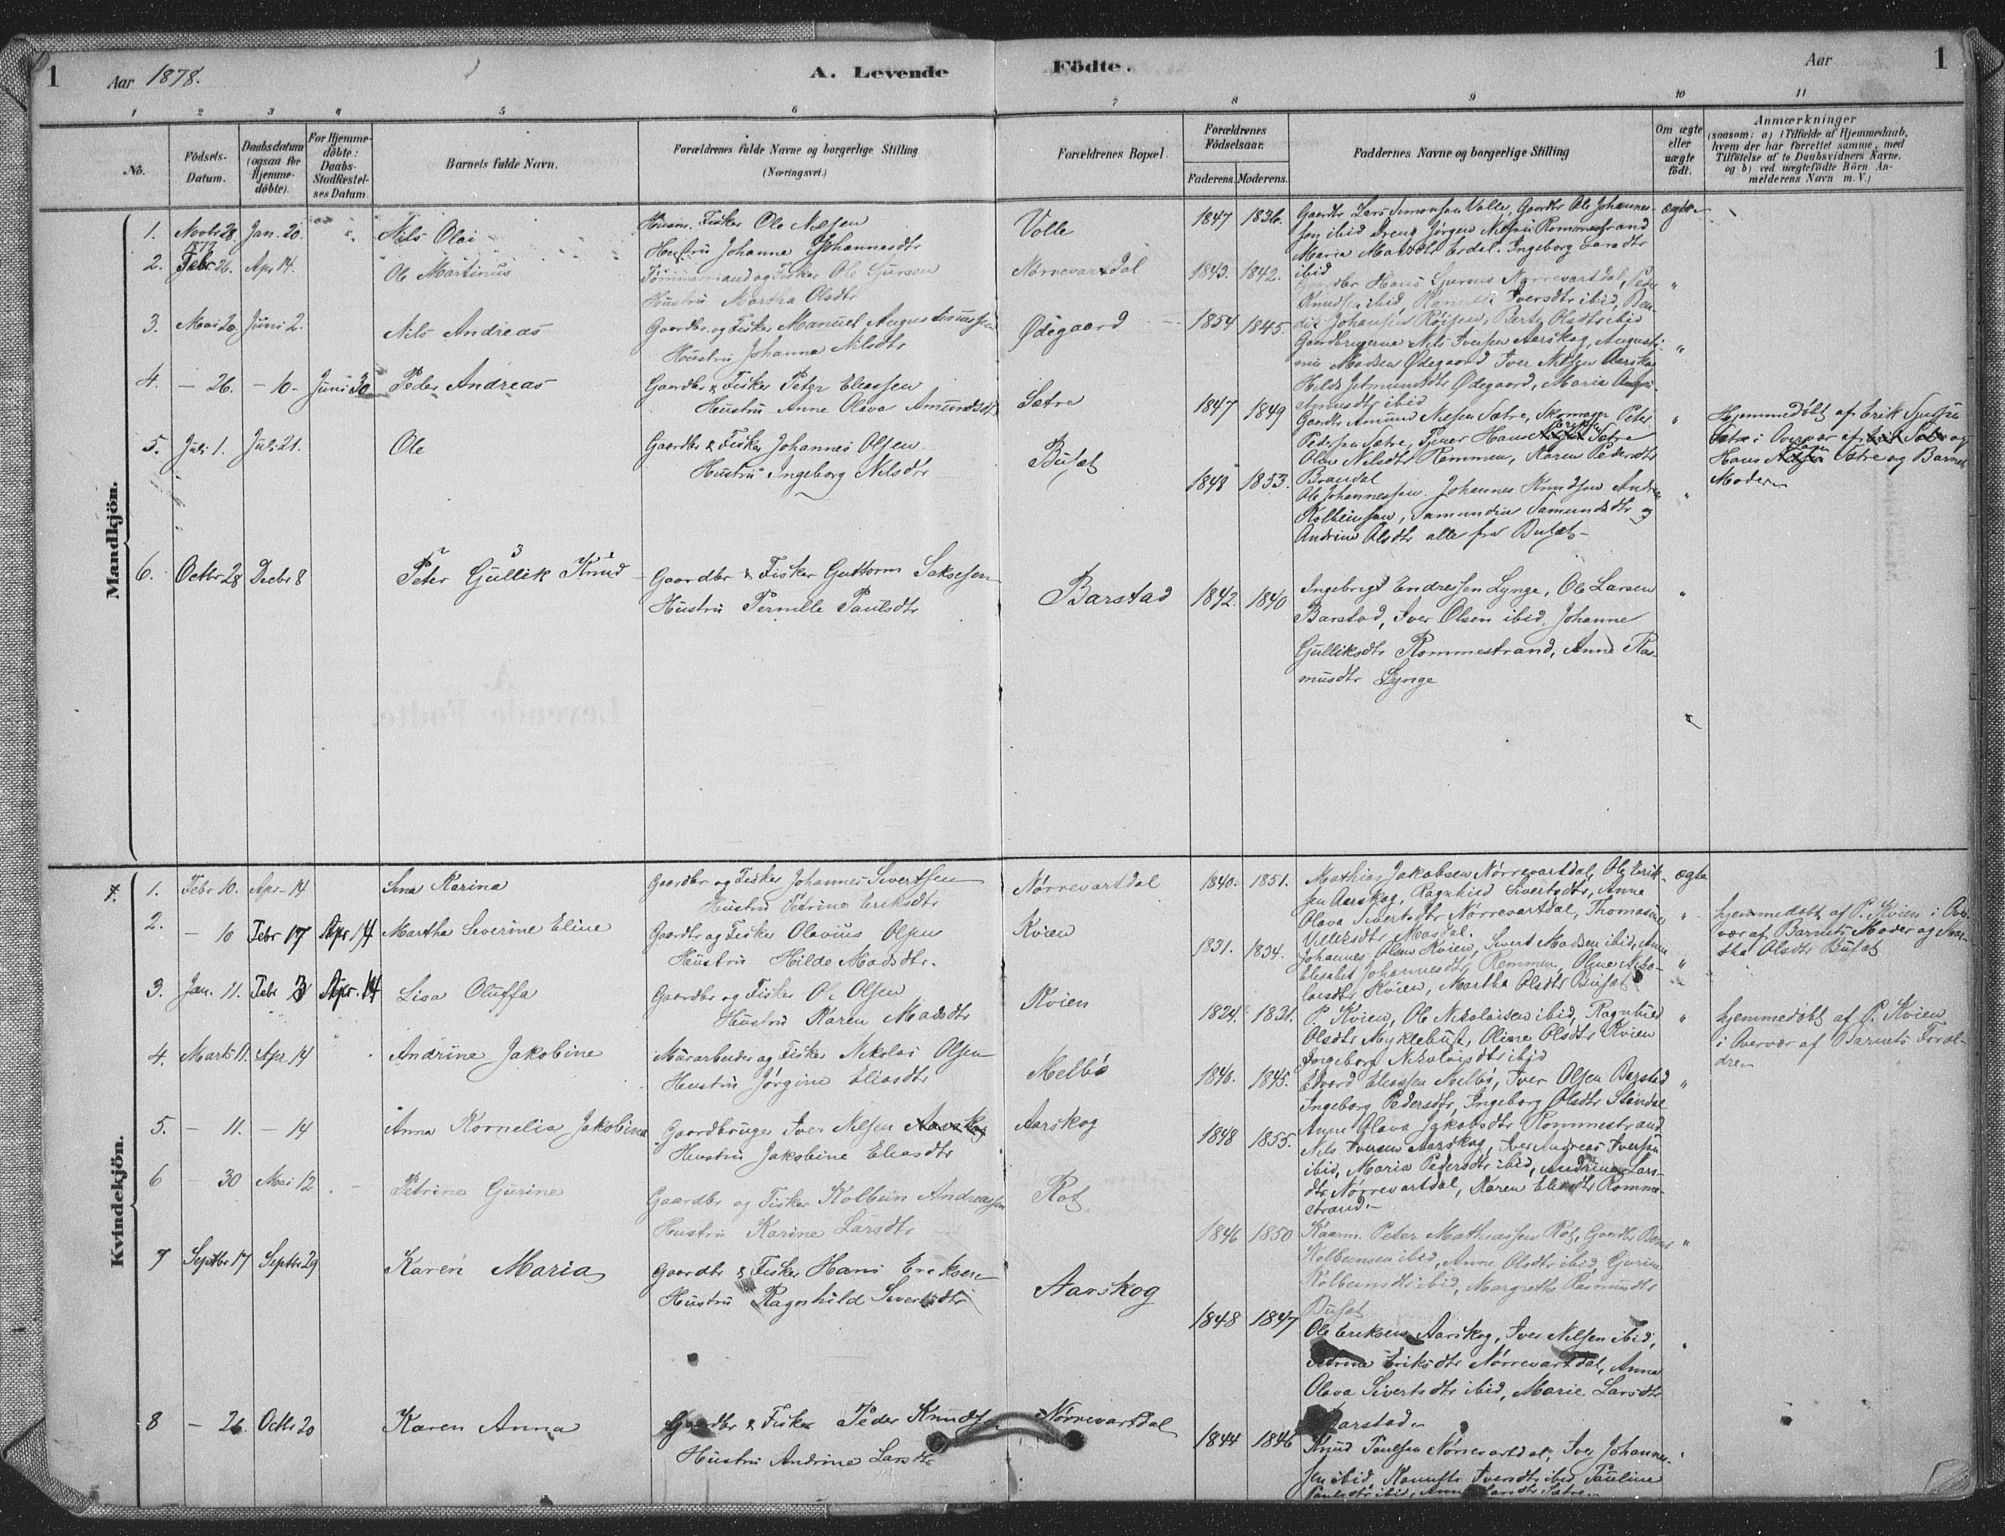 1 Aar 1878. A. Levende Födte. Aar 1
1 2 3 4 5 6 7 8 9 10 11
No.
Födsels-
Datum.
Daabsdatum
(ogsaa for
Hjemme-
döbte).
For Hjemme-
döbte:
Daabs-
Stadfæstel-
ses Datum.
Barnets fulde Navn.
Forældrenes fulde Navne og borgerlige Stilling
(Næringsvei.)
Forældrenes Bopæl.
Forældrenes
Födselsaar.
Faderens. Moderens.
Faddernes Navne og borgerlige Stilling
Om ægte
eller
uægte
födt.
Anmærkninger
(saasom: a) i Tilfælde af Hjemmedaab,
hvem der har forrettet samme, med
Tilföielse af to Daabsvidners Navne,
og b) ved uægtefödte Börn An-
melderens Navn m. V.)
Mandkjön.
1. Novbr 28 1877 Jan. 20 Nils Olai
Husm. Fisker Ole Nilsen
Hustru Johanne Johannesdtr
Volle 1847 1836.
Gaardbr Lars Simonsen Volle, Gaardbr Ole Johannes-
sen ibid Dreng Jørgen Nilsen Rommestrand
Maria Matsdtr Erdal. Ingeborg Larsdtr
ibid
ægte
2. Febr. 26. Apr 14. Ole Martinus
Tømmermand og Fisker Ole Sjursen
Hustru Martha Olsdtr
Nørrevartdal 1843. 1842.
Gaardbr Hans Sjursen Nørrevartdal, Peder
Knudsen ibid, Iversdtr ibid, Ben-
Johansen Røisen, Berte Olsdtr ibid
"
3. Mai 20. Juni 2. Nils Andreas
Gaardbr og Fisker Manuel Augustinussen
Hustru Johanna Nilsdtr
Ødegaard 1854 1845.
Gaardbrugerne Nils Iversen Aarskog, Augusti-
nus Madsen Ødegaard Iver Nilsen Aarskog
Hilde Ødegaard, Maria
ibid
"
4. - 26. - 10. Juni 30 Peder Andreas
Gaardbr & Fisker Peter Eliassen
Hustru Anne Olava Amundsdtr
Sætre 1847 1849
Gaardbr Amund Nilsen Sætre, Skomager Peter
Pedersen Sætre, Tjener Hans Sætre
Oline Nilsdtr Remmen, Karen Pedersdtr
Brandal
"
Hjemmedøbt af Erik
Sætre i Overvær af og
Hans Sætre og Barnets
Moder
5. Juli 1. Juli 21. Ole
Gaardbr & Fisker Johannes Olsen
Hustru Ingeborg Nilsdtr
Busæt 1848 1853.
Ole Johannessen. Johannes Knudsen Andreas
Kolbeinsen, Samundine Samundsdtr og
Andrine Olsdtr alle fra Busæt
"
6. Octbr 28 Decbr 8 Peter Gullik Knud
Gaardbr & Fisker Guttorm Saksesen
Hustru Pernille Paulsdtr
Barstad 1842. 1840
Ingebrigt Endressen Lynge, Ole Larsen
Barstad, Iver Olsen ibid, Johanne
Gulliksdtr Rommestrand, Anne Ras-
musdtr Lynge
"
Kvindekjön.
1. Febr 10. Apr 14 Sina Karina
Gaardbr og Fisker Johannes Sivertsen
Hustru Petrine Eriksdtr
Nørrevartdal 1840. 1851.
Mathias Jakobsen Nørrevartdal, Ole Erik-
sen Aarskog, Ragnhild Sivertsdtr, Anne
Olava Sivertsdtr Nørrevartdal, Thomasine
Masdal.
ægte
2. - 10 Febr 17 Apr 14 Martha Severine Eline
Gaardbr og Fisker Olavius Olsen
Hustru Hilde Madsdtr.
Kvien 1831. 1834.
Johannes Olsen Kvien, Sivert Madsen ibid, Anne
Elisabet Johannesdtr Remmen, Oline Niko-
laisdtr Kvien, Martha Olsdtr Busæt
"
hjemmedøbt af P. Kvien i Over-
vær af Barnets Moder og Mar-
tha Olsdtr Busæt
3. Jan. 11. Febr 3 Apr. 14 Lisa Oluffa
Gaardbr og Fisker Ole Olsen
Hustru Karen Madsdtr
Kvien 1824. 1831.
P. Kvien, Ole Nikolaisen ibid, Ragnhild
Olsdtr Myklebust, Oline Olsdtr Kvien
Ingeborg Nikolaisdtr ibid
"
hjemmedøbt af P. Kvien
i Overvær af Barnets Foræl-
dre
4. Marts 11. Apr. 14 Andrine Jakobine
Murarbeider og Fisker Nikolai Olsen
Hustru Jørgine Eliasdtr
Melbø 1846. 1845.
Edvard Eliassen Melbø, Iver Olsen Barstad
Ingeborg Pedersdtr, Ingeborg Olsdtr Støndal
Anne Olava Jakobsdtr Rommestrand
"
5. - 11. - 14 Anna Kornelia Jakobina
Gaardbruger Iver Nilsen Aarskog
Hustru Jakobine Eliasdtr
Aarskog 1848 1855.
Nils Iversen Aarskog, Iver Andreas Iversen
ibid, Maria Pedersdtr ibid, Andrine Lars-
dtr Nørrevartdal, Karen Eliasdtr Romme-
strand.
6 - 30 Mai 12 Petrine Gurine
Gaardbr og Fisker Kolbein Andreassen
Hustru Karine Larsdtr
Rot 1846 1850
Kaarm. Peter Mathiassen Rot, Gaardbr
Kolbeinsen ibid, Anne Olsdtr ibid, Gurine
Kolbeinsdtr ibid, Margrethe Rasmusdtr
Busæt
"
7 Septbr 17 Septbr 29 Karen Maria
Gaardbr & Fisker Hans Eriksen
Hustru Ragnhild Sivertsdtr
Aarskog 1848 1847
Ole Eriksen Aarskog, Iver Nilsen ibid,
Petrina Eriksdtr Nørrevartdal, Anna
Olava Sivertsdtr ibid, Marie Larsdtr
Barstad
8 - 26. Octbr 20 Karen Anna
Gaardbr & Fisker Peder Knudsen
Hustru Andrine Larsdtr
Nørrevartdal 1844 1846
Knud Paulsen Nørrevartdal, Iver Johannes-
sen ibid, Iversdtr ibid Pauline
Paulsdtr ibid, Anne Larsdtr Sætre